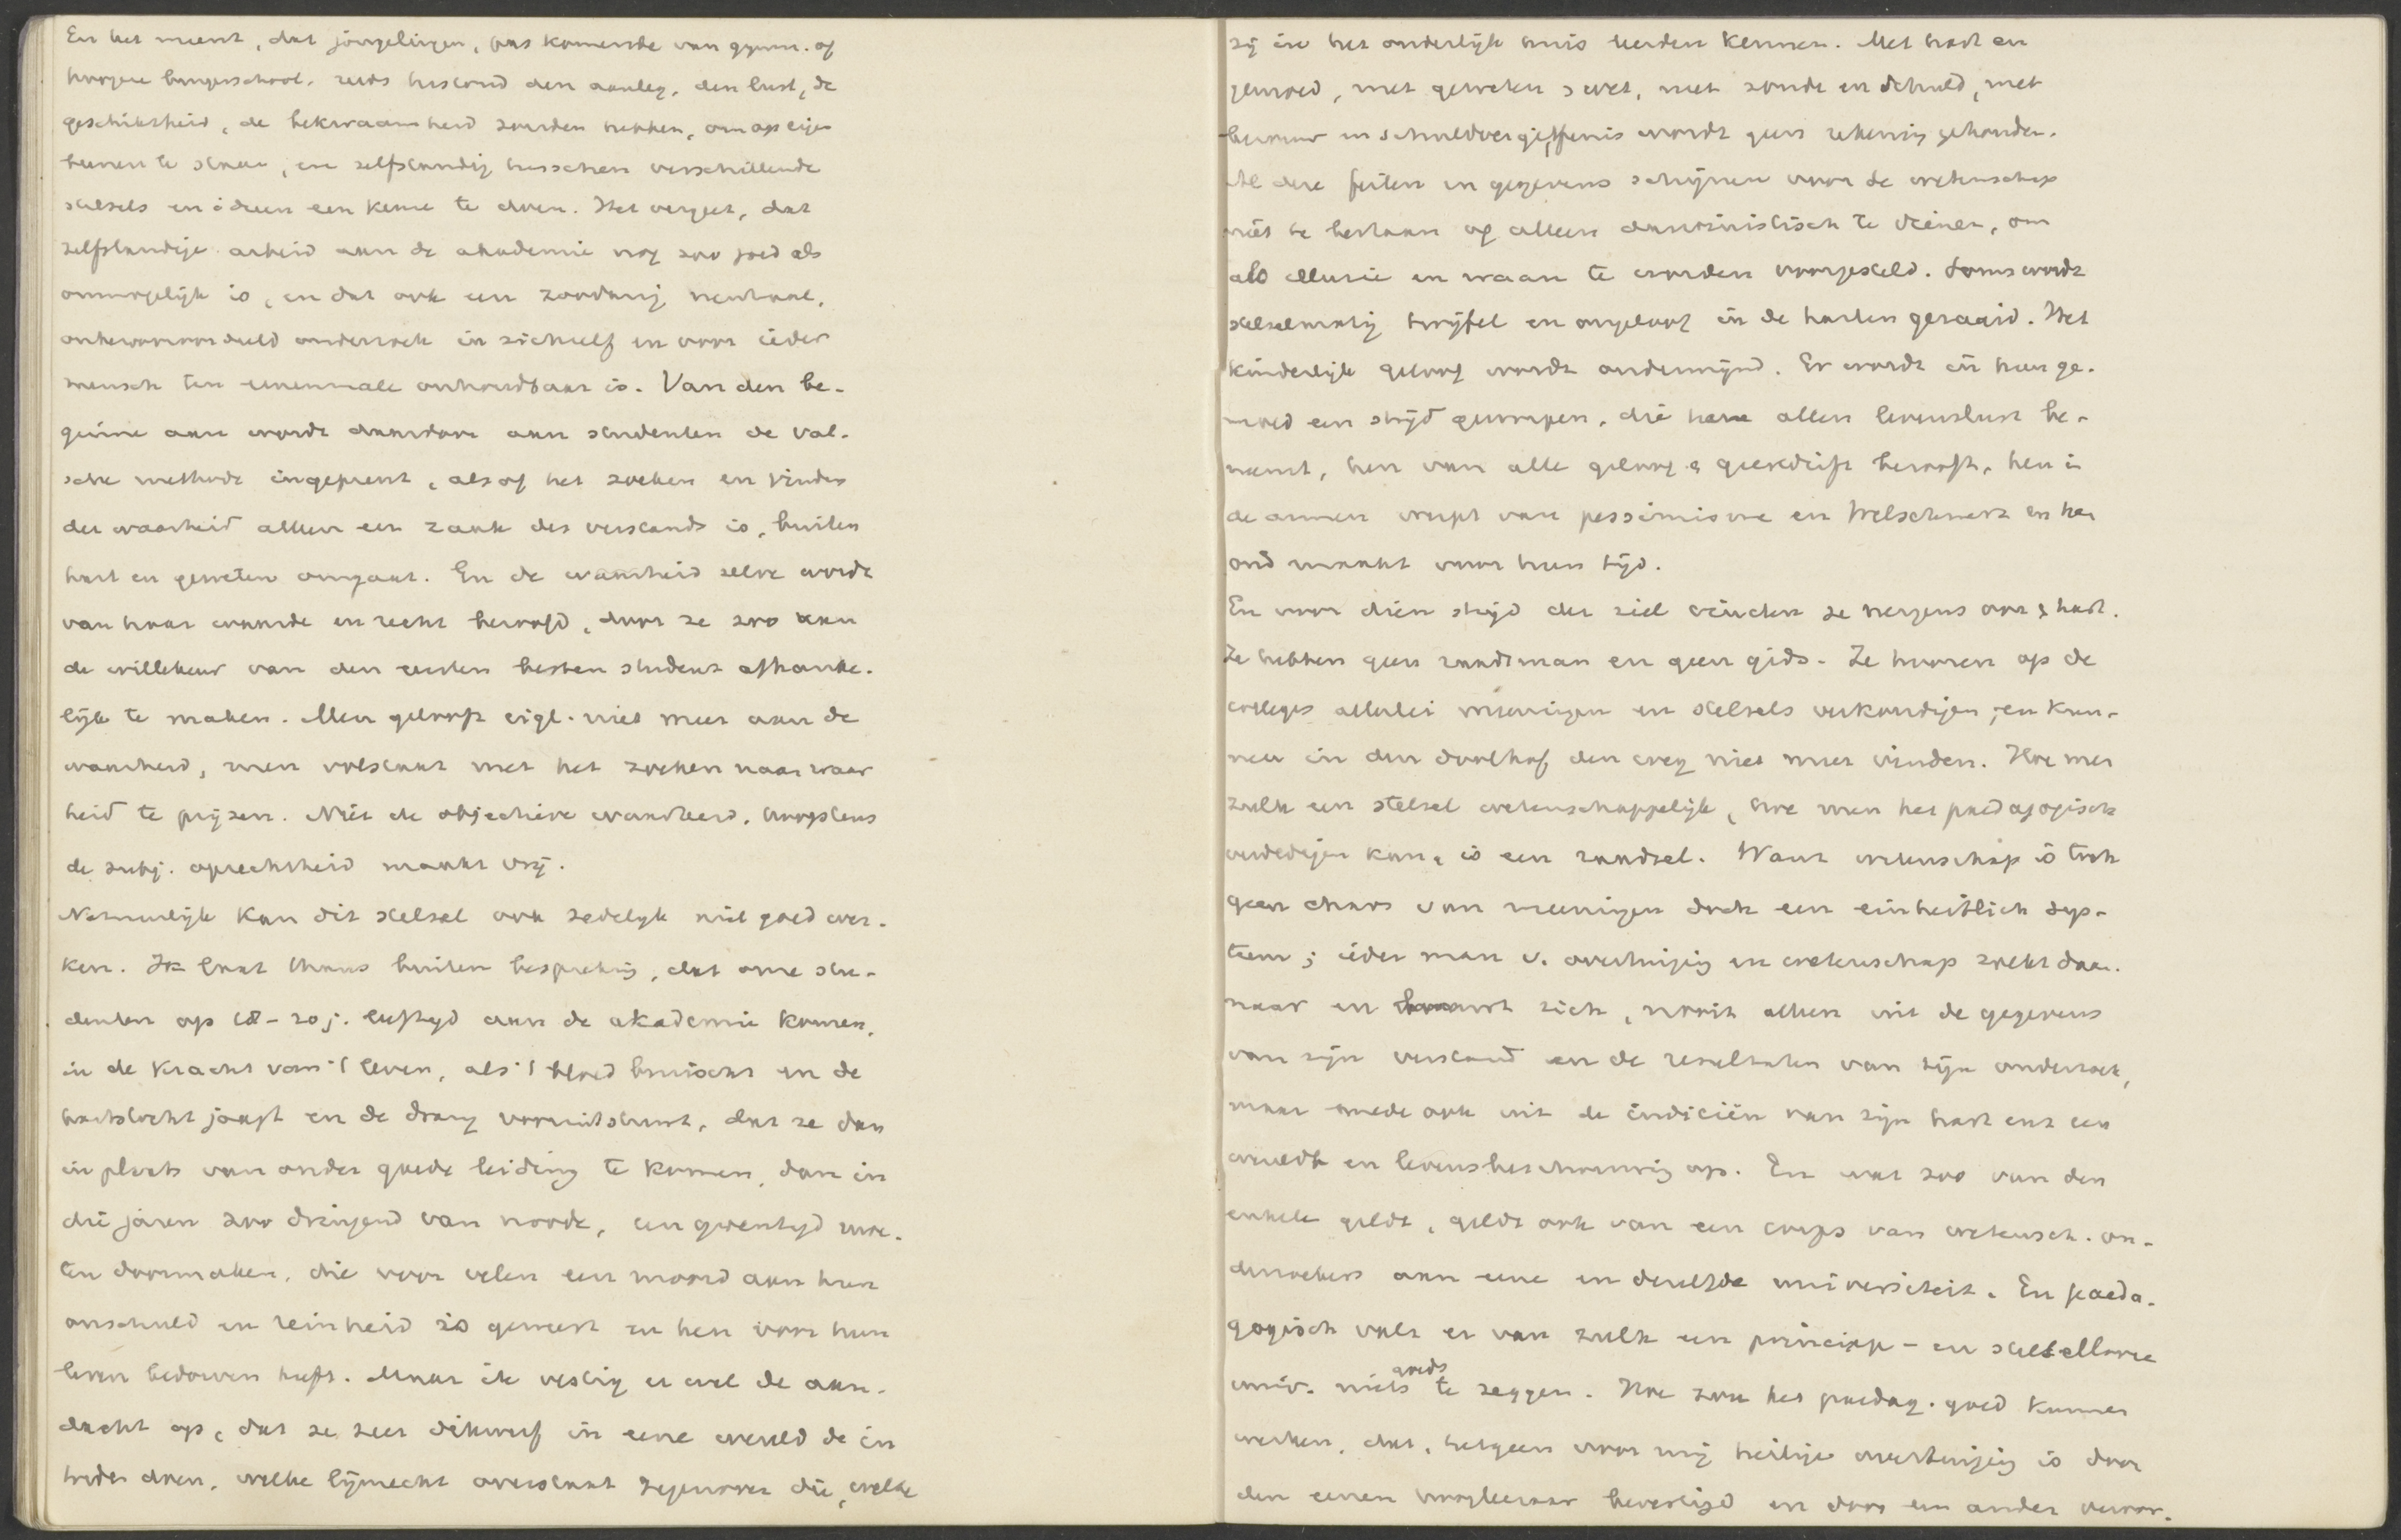 En het meent, dat jongelingen, pas komende van gymn. of
hoogere burgerschool, reeds terstond den aanleg, den lust, de
geschiktheid, de bekwaamheid zouden hebben, om op eigen
beenen te staan, en zelfstandig tusschen verschillende
stelsels en ideeen een keuze te doen. Het vergeet, dat
zelfstandige arbeid aan de akademie nog zoo goed als
onmogelijk is, en dat ook een zoodanig neutraal,
onbevooroordeeld onderzoek in zichzelf en voor ieder
mensch ten eenenmale onhoudbaar is. Van den be-
ginne aan wordt daardoor aan studenten de val-
sche methode ingeprent, alsof het zoeken en vinden
der waarheid alleen een zaak des verstands is, buiten
hart en geweten omgaat. En de waarheid zelve wordt
van haar waarde en recht beroofd, door ze zoo aan
de willekeur van den eersten besten student afhanke-
lijk te maken. Men gelooft eigl. niet meer aan de
waarheid, men volstaat met het zoeken naar waar
heid te prijzen. Niet de objectieve waarheid, hoogstens
de subj. oprechtheid maakt vrij.
Natuurlijk kan dit stelsel ook zedelijk niet goed wer-
ken. Ik laat thans buiten bespreking, dat onze stu-
denten op 18-20 j. leeftijd aan de akademie komen,
in de kracht van 't leven, als 't bloed bruischt en de
hartstocht jaagt en de drang vooruitstuwt, dat ze dan
in plaats van onder goede leiding te komen, dan in
die jaren zoo dringend van noode, een groentijd moe-
ten doormaken, die voor velen een moord aan hun
onschuld en reinheid is geweest en hen voor hun
leven bedorven heeft. Maar ik vestig er wel de aan-
dacht op, dat ze zeer dikwerf in eene wereld de in
trede doen, welke lijnrecht overstaat tegenover die, welke
zij in het ouderlijk huis leerden kennen. Met hart en
gemoed, met geweten, met zonde en schuld, met
berouw en schuldvergiffenis wordt geen rekening gehouden.
Al deze feiten en gegevens schijnen voor de wetenschap
niet te bestaan of alleen darwinistisch te dienen, om
als illusie en waan te worden voorgesteld. Soms wordt
stelselmatig twijfel en ongeloof in de harten gezaaid. Het
kinderlijk geloof wordt ondermijnd. Er wordt in hun ge-
moed een strijd geworpen, die hen allen levenslust be-
neemt, hen van alle geloof & geestdrift berooft, hen in
de armen werpt van pessimisme en Weltschmerz en hen
oud maakt voor hun tijd.
En voor dien strijd der ziel vinden ze nergens oor & hart.
Ze hebben geen raadsman en geen gids. Ze hooren op de
colleges allerlei meeningen en stelsels verkondigen, en kun-
nen in den doolhof den weg niet meer vinden. Hoe men
zulk een stelsel wetenschappelijk, hoe men het paedagogisch
verdedigen kan, is een raadsel. Want wetenschap is toch
geen chaos van meeningen doch een einheitlich sys-
teem; ieder man v. overtuiging en wetenschap zoekt daar-
naar en bouwt zich, nooit alleen uit de gegevens
van zijn verstand en de resultaten van zijn onderzoek,
maar mede ook uit de indiciën van zijn hart enz een
wereld- en levensbeschouwing op. En wat zoo van den
enkele geldt, geldt ook van een corps van wetensch. on-
derzoekers aan eene en dezelfde universiteit. En paeda-
gogisch valt er van zulk een principe- en stelsellooze
univ. niets goeds te zeggen. Hoe zou het paedag. goed kunnen
werken, dat, hetgeen voor mij heilige overtuiging is door
den eenen hoogleeraar bevestigd en door een ander veroor-